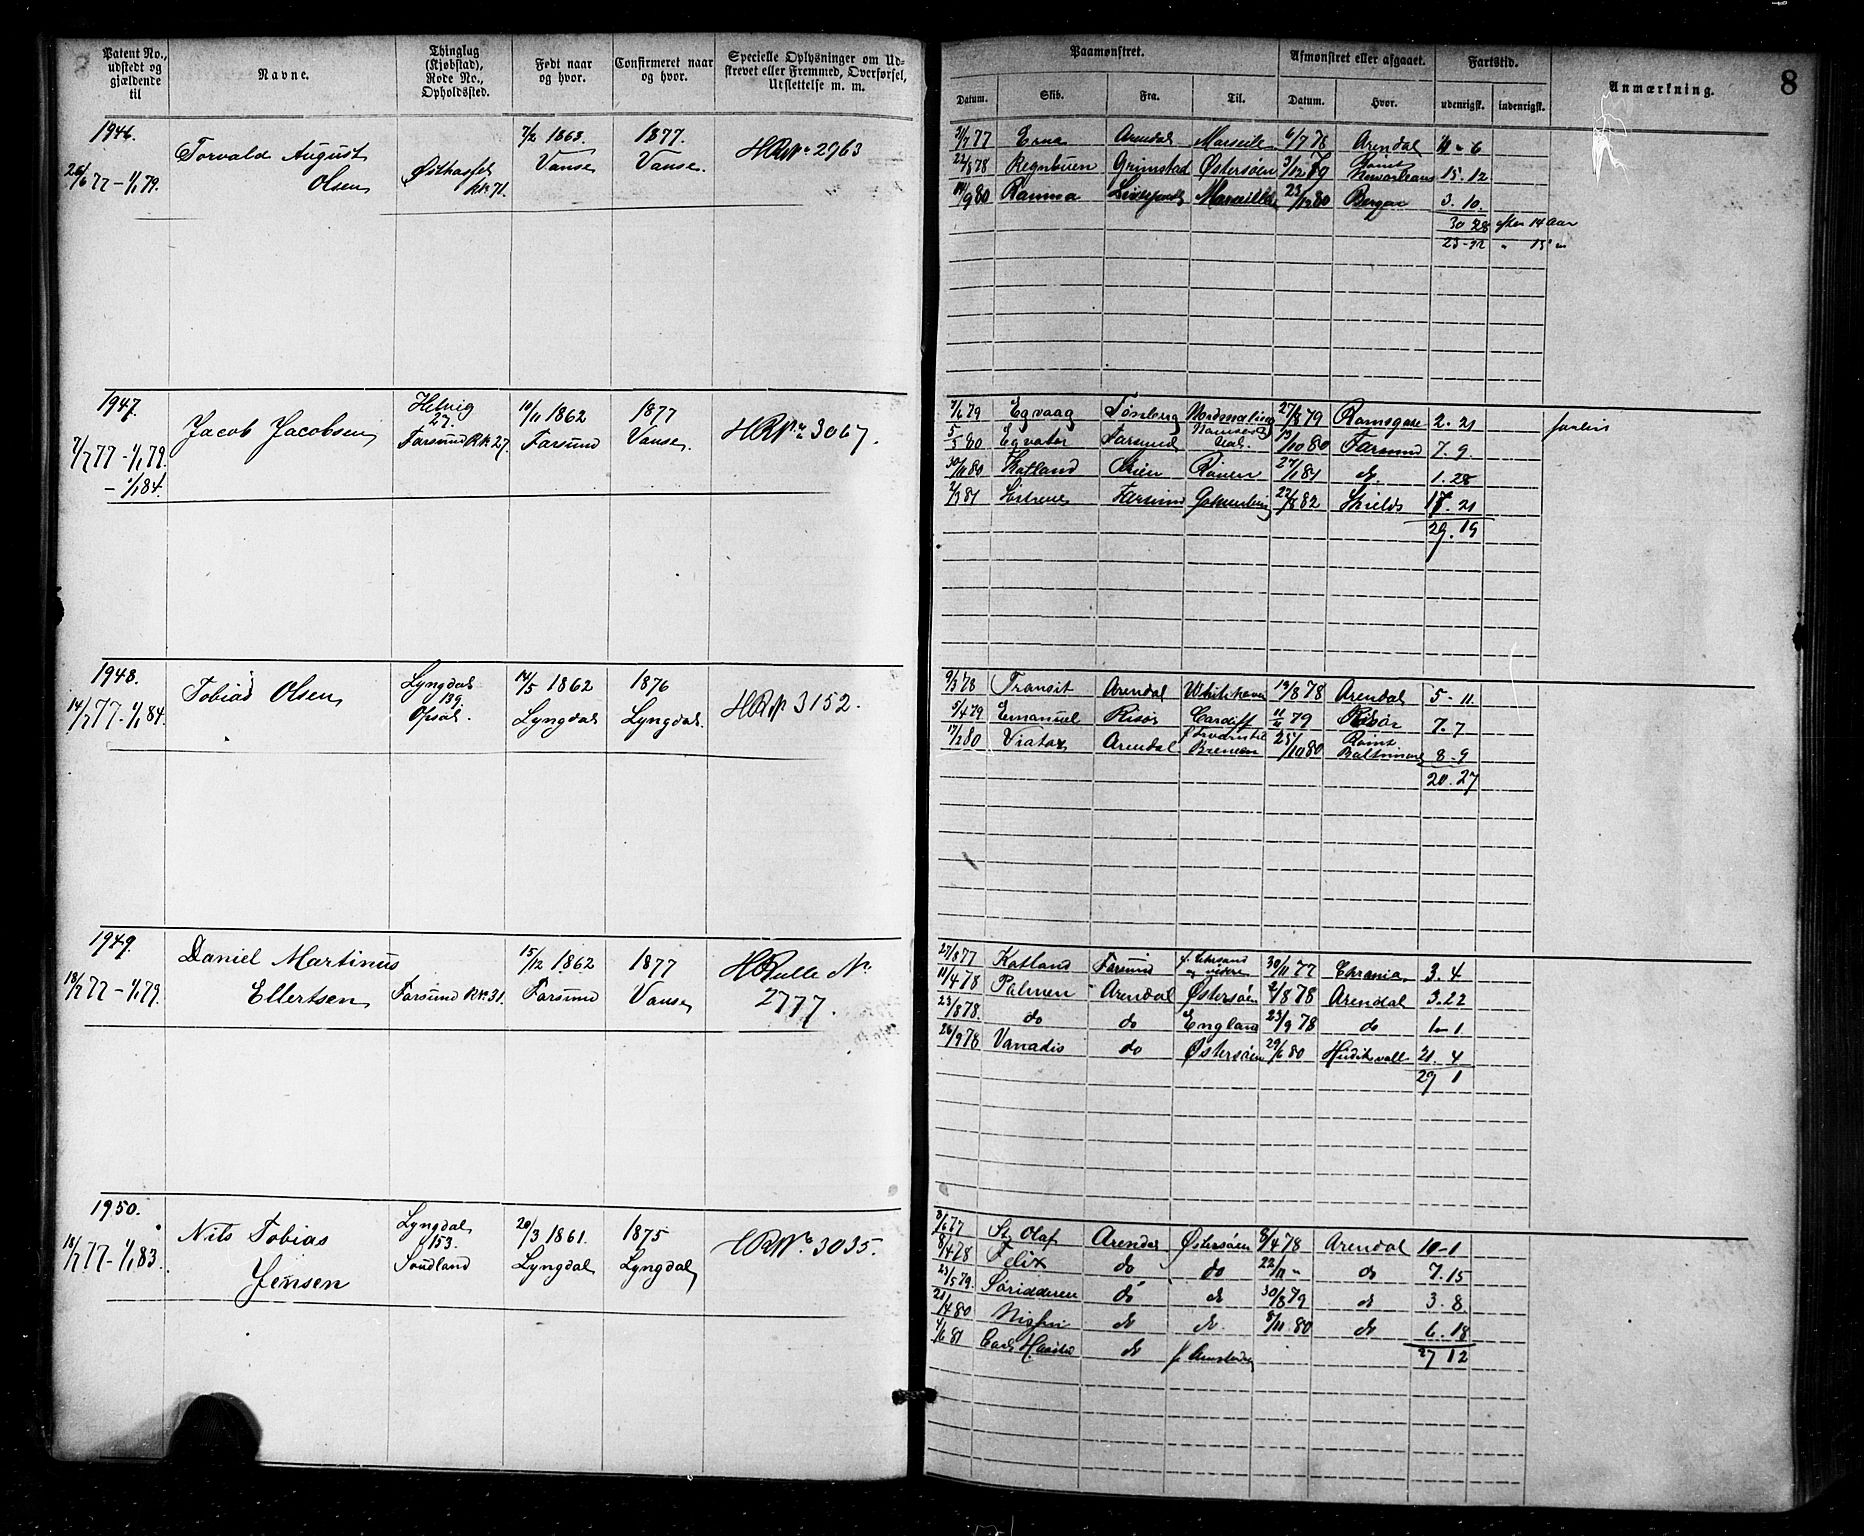 Patent No., udstedt og gjældende til
Navne.
Thinglag (Kjøbstad), Rode No., Opholdssted.
Født naar og hvor.
Confirmeret naar og hvor.
Specielle Oplysninger om Udstrevet eller Fremmed, Overførsel, Utslettelse m. m.
Paamønstret.
Afmønstret eller afgaaet.
Fartstid.
Anmærkning.
8
Datum.
Skib.
Fra.
Til.
Datum.
Hvor.
udenrigsk.
indenrigsk.
1946.
26/6 77 - 1/1 79.
Torvald August
Olsen
7/2 1863.
Vanse
1877.
Vanse.
HR No 2963
77 Erna Arendal Marseille 6/7 78 Arendal
22/8 78 Regnbuen Grimstad Østersøen 3/12 79 15.12
80 Ramma Marseille 23/12 80 Bergen 3.10.
30 28 efter 14 Aar
1947.
7/7 77 - 1/1 79.
- 1/1 84.
Jacob Jacobsen
Helvig
27.
Farsund R No 27.
10/11 1862
Farsund
1877
Vanse
HR No 3067.
7/6 79 Egvaag Tønsberg 27/8 79 Ramsgate 2.21
5/5 80 Egvator Farsund 80 Farsund 7.9.
30/11 80 Katland 27/1 81 do. 1.28
2/3 81 Farsund Gothenburg 22/8 82 Shields 17.21
29.19
1948.
14/7 77 - 1/1 84.
Tobias Olsen
Lyngdal
139.
Opsal.
14/5 1862
Lyngdal
1876
Lyngdal.
HR No 3152.
9/3 78 Transit Arendal Whitehaven 19/8 78 Arendal 5-11
5/4 79 Emanuel Risør Cardiff 79 Risør 7.7
17/2 80 Viator Arendal Bremen 25/10 80 Baltimore 8-9
20.27
1949.
18/7 77 - 1/1 79.
Daniel Martinus
Ellertsen
Farsund R No 31.
15/12 1862
Farsund
1877
Vanse
HRulle No
2777.
27/8 77 Katland Farsund 30/11 77 Chrania 3.4
11/4 78 Palmen Arendal Østersøen 2/8 78 Arendal 3.22
23/8 78. do do England 23/9 78 do 1-1
26/9 78 Vanadis do Østersøen 29/6 80 21.4
29 1
1950.
18/7 77 - 1/1 83.
Nils Tobias
Jensen
Lyngdal
153.
20/3 1861.
Lyngdal
1875
Lyngdal
HR No 3035.
77 St. Olaf Arendal Østersøen 8/4 78 Arendal 10-1
8/4 78 Felix do do 22/11 " do 7.15
23/5 79. do do 30/8 79 do 3.8
21/4 80 do do 8/11 80 do 6.18
81 do
27 12